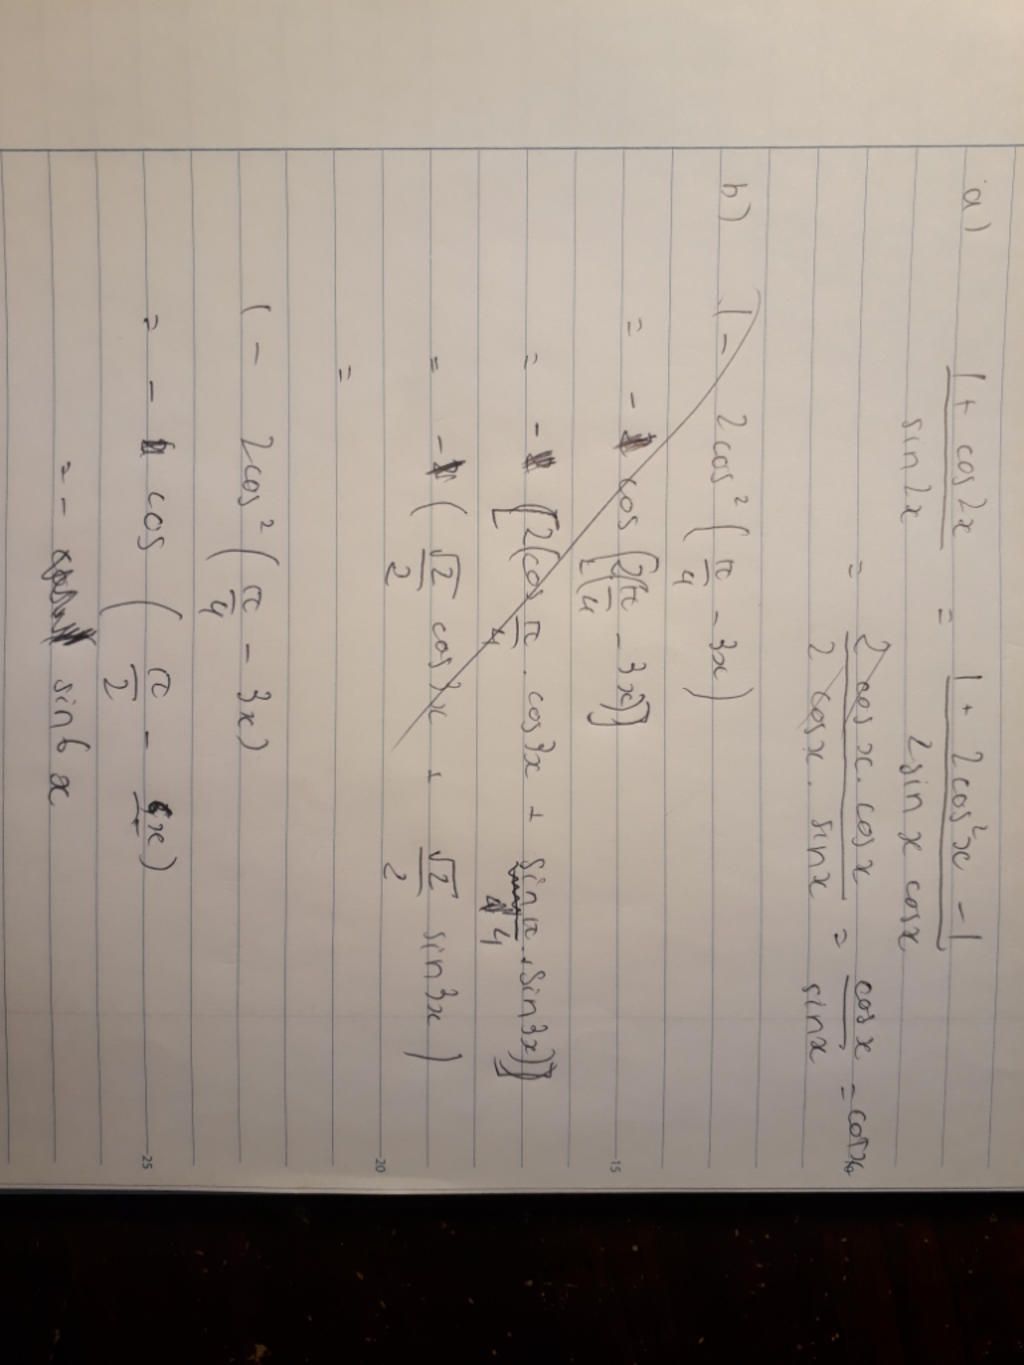 a) 1 + cos2x / sin2x = 1 + 2cos²x - 1 / 2sin x cosx
= 2 cos x . cos x / 2 cosx . sin x = cos x / sin x = cotx
b) 1 - 2cos² (π/4 - 3x)
= - cos [2(π/4 - 3x)]
15
= - [2(cos π/4 . cos3x + sin π/4 . sin3x)]
= - (√2/2 cos3x + √2/2 sin3x)
20
=
1 - 2cos² (π/4 - 3x)
= - cos (π/2 - 6x)
25
= - sin6x